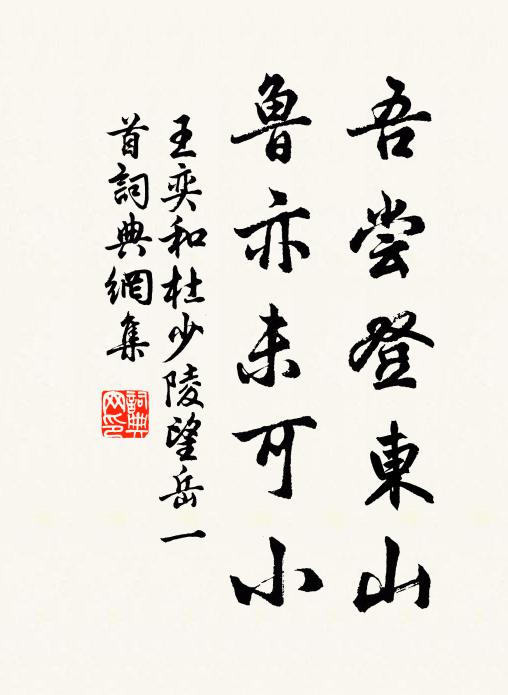 吾尝登東山
魯亦未可小
王奕和杜少陵望岳一
首詞典網集
詞典
网印